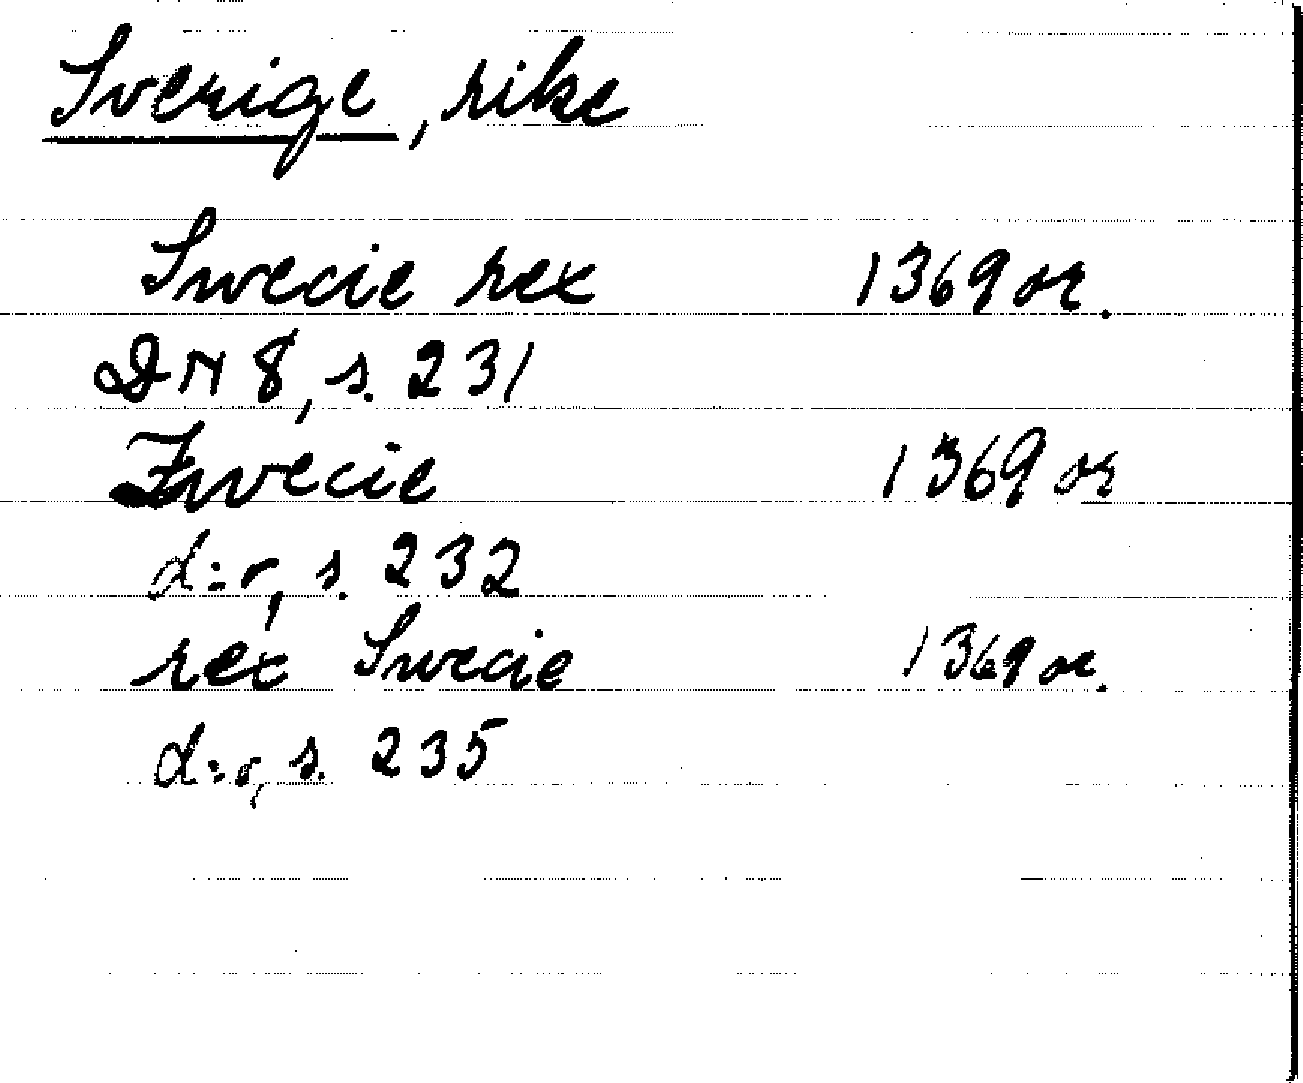 Sverige, rike
Swecie rex 1369 or.
DN 8, s. 231
Zwecie 1369 or
d:r, s. 232
rex Swecie 1369 or.
d:r, s. 235